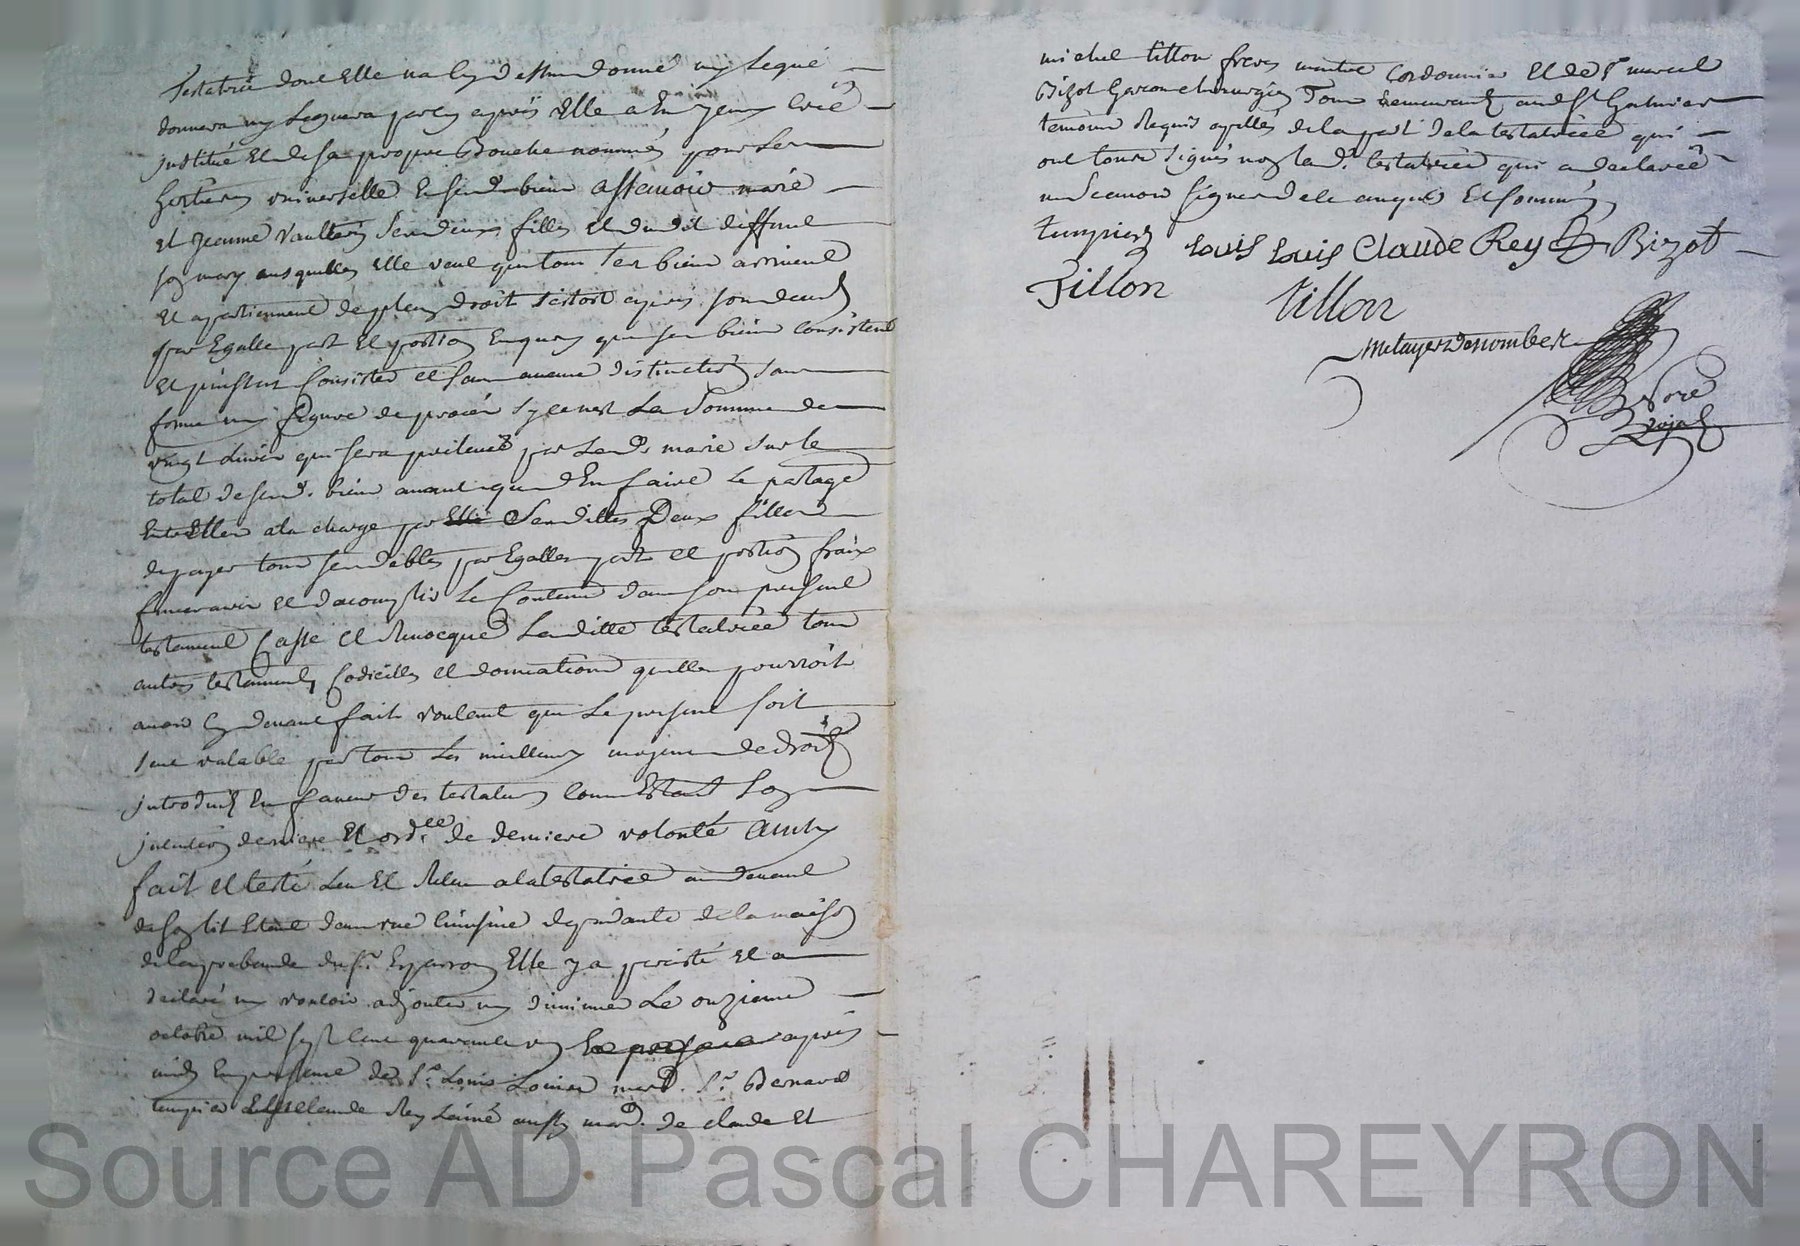 Testatrice dont Elle na cy dessus donné ny Legué
donnera ny Leguera par cy apres Elle a En yceux Créé
institué Et de sa propre Bouche nommés pour ses
heritieres universelle Esd. bien assavoir marie
Et Jeanne Vaultier ses deux filles Et du dit deffunt
son mary ausquelles Elle veut que tous ses bien arrivent
Et apartiennent de plein droit sitost apres son deceds
par Egalle part Et portion Enquoy que ses bien Consistent
Et puissent Consister Et sans aucune distinction sans
forme ny figure de procés sy ce nest La Somme de
vingt Livres qui sera prelevée par Lad. marie sur le
total desd. bien avant que d'En faire Le partage
Entre Elles a la charge par Elle Sesdittes Deux filles
de payer tous ses debtes par Egalles part et portion fraix
funeraire Et dacomplir Le Contenu dans son present
testament Casse Et Revocque Laditte testatrice tous
autres testaments Codicilles Et donnations quelle pourroit
avoir cy devant fait voulant que Le present soit
seul valable par tous Les meilleurs moyens de droit
introduit En faveur des testateurs Comme Estant Son
intention derniere Et ordce de derniere volonté Ainsy
fait Et testé Leu Et Releu a la testatrice au devant
de son lit Etant dans une Cuisine dependante de la maison
de la prebande du Sr. Esparron Elle y a persisté Et a
declaré ny vouloir adjouter ny diminuer Le onzieme
octobre mil sept cent quarante un apres
midy En presence de Sr. Louis Louis mard. Sr. Bernard
tempier Claude Rey Lainé aussy mard. de claude Et
michel tillon freres maitre Cordonnier Et de Sr. marcel
Bizot Garcon chirurgien Tous demeurants aud. St Galmier
temoins Requis apellés de la part de la testatrice qui
ont tous signés non lad. testatrice qui a declaré
ne Scavoir Signer de ce enquise Et sommée
tempier Louis Louis Claude Rey Bizot
Tillon tillon
Metayer Denombret
Nore
Royal
Source AD Pascal CHAREYRON